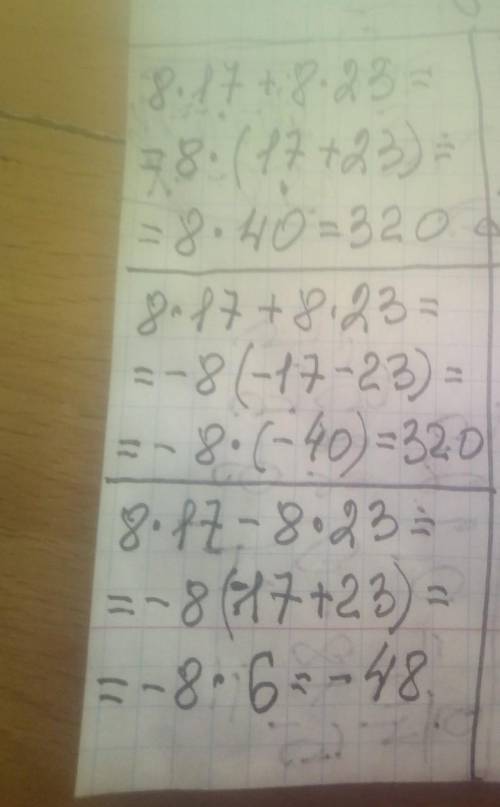 8·17+8·23=
=8·(17+23)=
=8·40=320
8·17+8·23=
=-8(-17-23)=
=-8·(-40)=320
8·17-8·23=
=-8(-17+23)=
=-8·6=-48